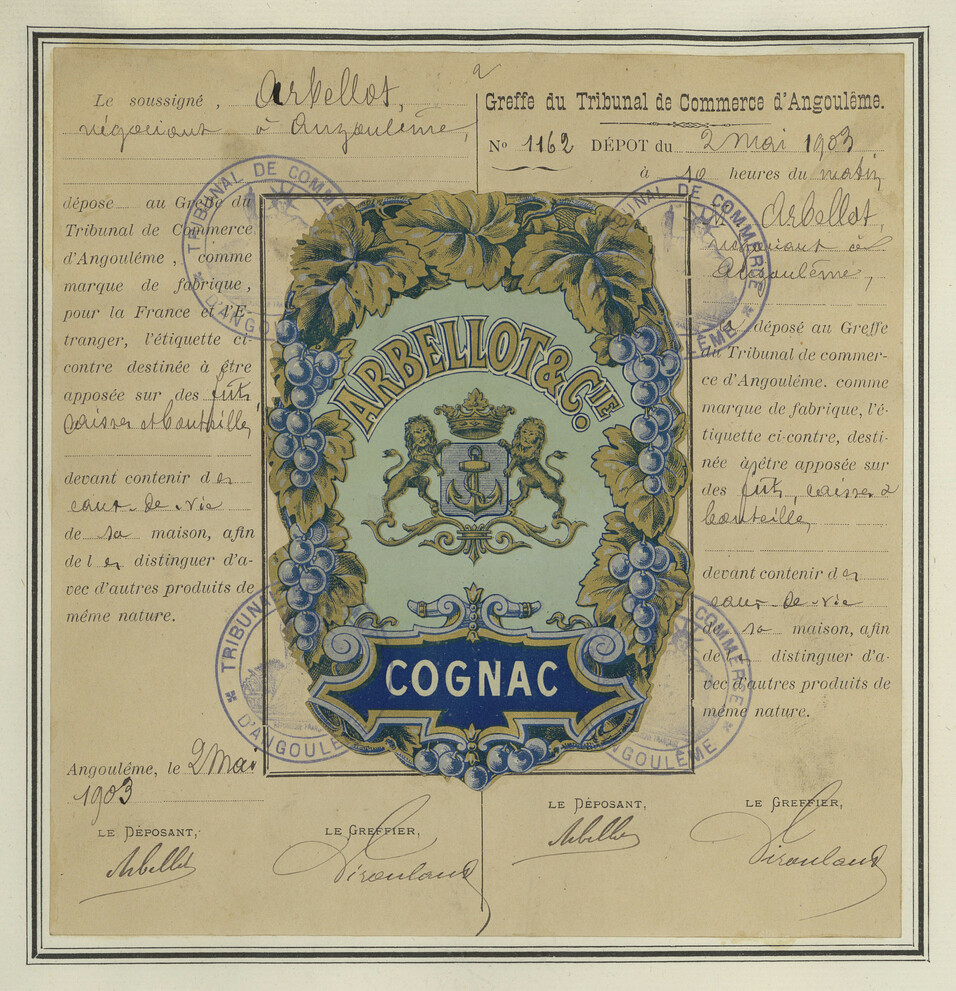 Le soussigné, Arbellot,
négociant à Angoulême,
dépose au Greffe du
Tribunal de Commerce
d'Angoulême, comme
marque de fabrique,
pour la France et l'E-
tranger, l'étiquette ci-
contre destinée à être
apposée sur des fûts,
caisses et bouteilles
devant contenir des
eaux-de-vie
de sa maison, afin
de les distinguer d'a-
vec d'autres produits de
même nature.
Angoulême, le 2 Mai
1903
LE DÉPOSANT,
Arbellot
LE GREFFIER,
ARBELLOT & CIE.
COGNAC
Greffe du Tribunal de Commerce d'Angoulême.
No 1162 DÉPOT du 2 Mai 1903
à 10 heures du matin
M Arbellot,
négociant à
Angoulême,
a déposé au Greffe
du Tribunal de commer-
ce d'Angoulême. comme
marque de fabrique, l'é-
tiquette ci-contre, desti-
née à être apposée sur
des fûts, caisses &
bouteilles
devant contenir des
eaux-de-vie
de sa maison, afin
de les distinguer d'a-
vec d'autres produits de
même nature.
LE DÉPOSANT,
Arbellot
LE GREFFIER,
TRIBUNAL DE COMMERCE
D'ANGOULÊME
TRIBUNAL DE COMMERCE
D'ANGOULÊME
TRIBUNAL DE COMMERCE
D'ANGOULÊME
TRIBUNAL DE COMMERCE
D'ANGOULÊME